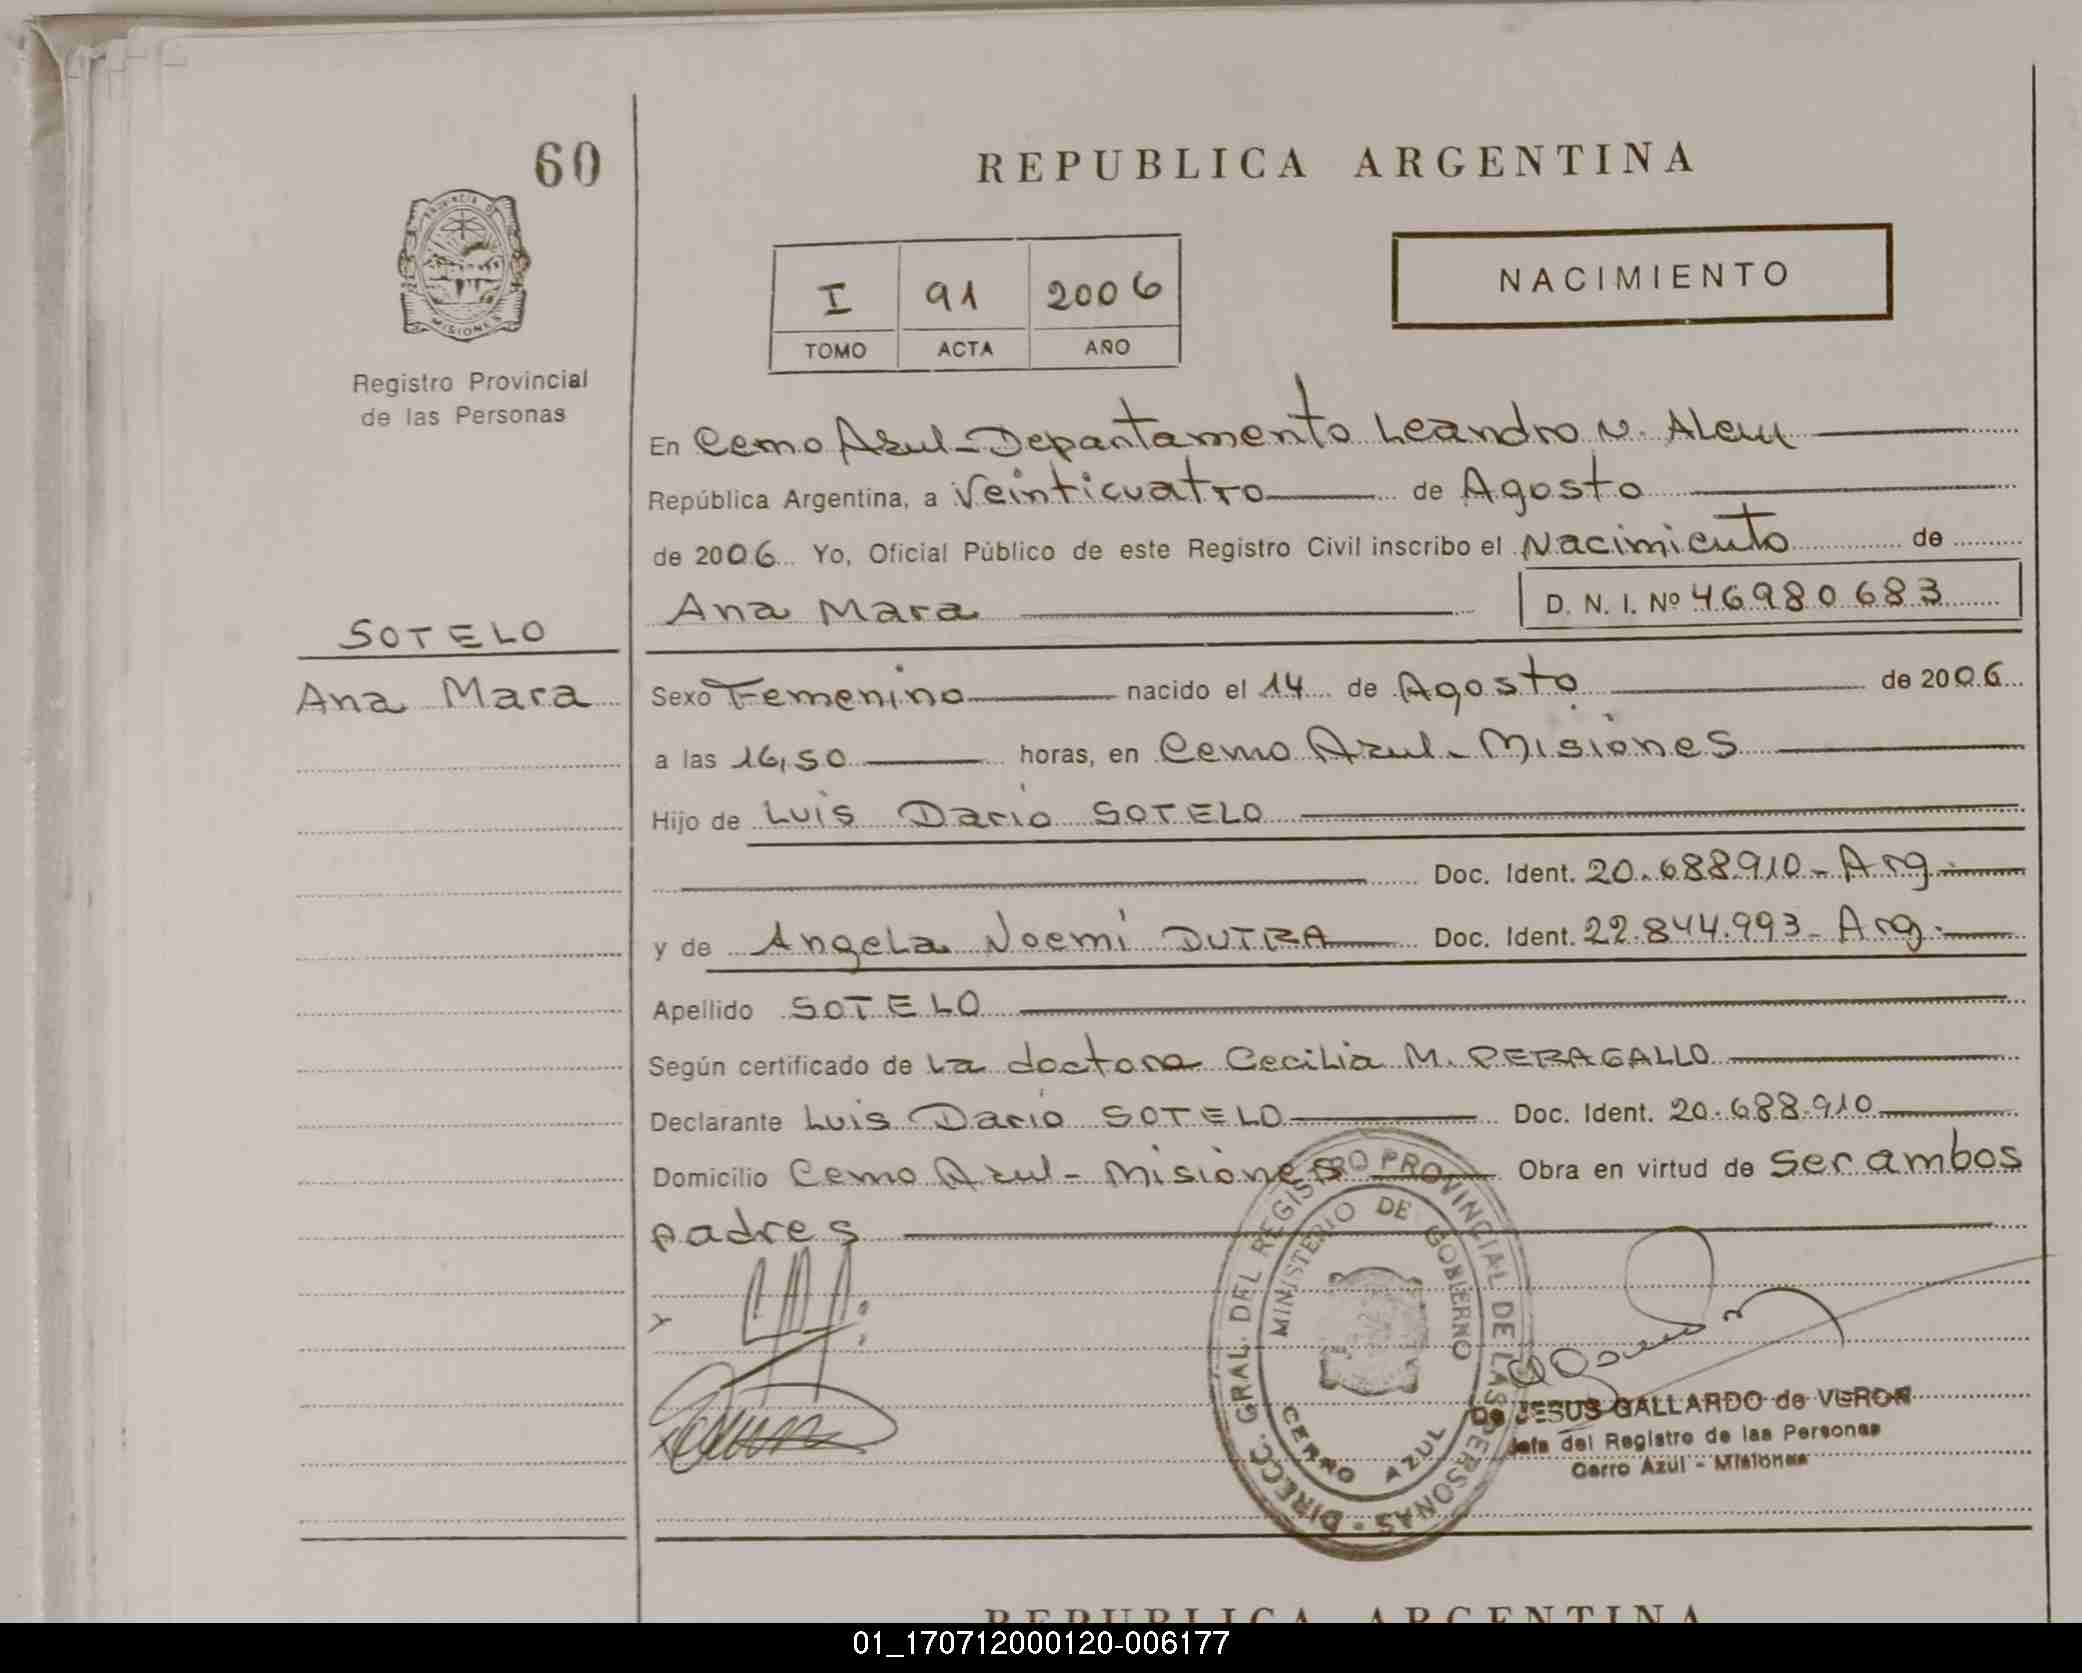 60
REPUBLICA ARGENTINA
PROVINCIA DE
MISIONES
Registro Provincial
de las Personas
I 91 2006
TOMO ACTA AÑO
NACIMIENTO
En Cerro Azul - Departamento Leandro N. Alem
República Argentina, a Veinticuatro de Agosto
de 2006 Yo, Oficial Público de este Registro Civil inscribo el Nacimiento de
Ana Mara D. N. I. Nº 46980683
SOTELO
Ana Mara
Sexo Femenino nacido el 14 de Agosto de 2006
a las 16,50 horas, en Cerro Azul - Misiones
Hijo de Luis Dario SOTELO
Doc. Ident. 20.688.910 - Arg.
y de Angela Noemi DUTRA Doc. Ident. 22.844.993 - Arg.
Apellido SOTELO
Según certificado de La doctora Cecilia M. PERAGALLO
Declarante Luis Dario SOTELO Doc. Ident. 20.688.910
Domicilio Cerro Azul - Misiones Obra en virtud de ser ambos
padres
DIRECC. GRAL. DEL REGISTRO PROVINCIAL DE LAS PERSONAS
MINISTERIO DE GOBIERNO
CERRO AZUL
De JESUS GALLARDO de VERON
Jefa del Registro de las Personas
Cerro Azul - Misiones
REPUBLICA ARGENTINA
01_170712000120-006177